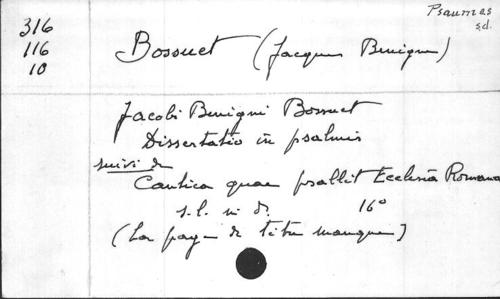 Psaumes
s.d.
316
116
10
Bossuet (Jacques Benigne)
Jacobi Benigni Bossuet
Dissertatio in psalmis
suivi de
Cantica quae psallit Ecclesia Romana
s.l. ni d. 16°
(La page de titre manque]